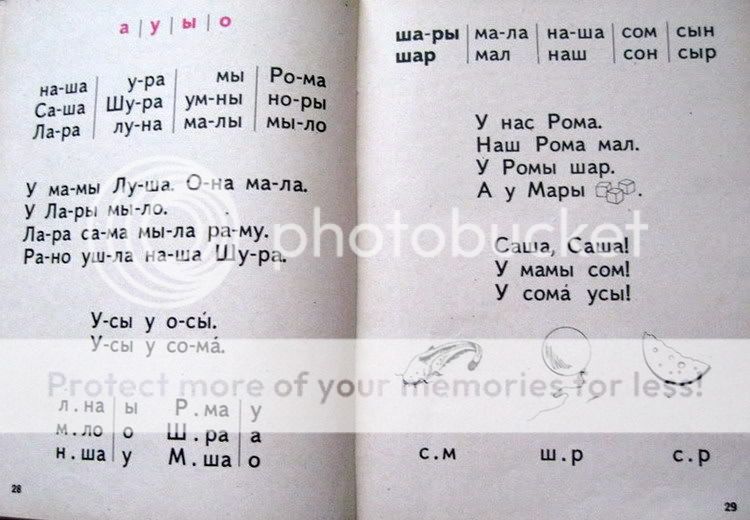 а | у | ы | о
на-ша | у-ра | мы | Ро-ма
Са-ша | Шу-ра | ум-ны | но-ры
Ла-ра | лу-на | ма-лы | мы-ло
У ма-мы Лу-ша. О-на ма-ла.
У Ла-ры мы-ло.
Ла-ра са-ма мы-ла ра-му.
Ра-но уш-ла на-ша Шу-ра.
У-сы у о-сы́.
У-сы у со-ма́.
л.на | ы
м.ло | о
н.ша | у
Р.ма | у
Ш.ра | а
М.ша | о
28
ша-ры | ма-ла | на-ша | сом | сын
шар | мал | наш | сон | сыр
У нас Рома.
Наш Рома мал.
У Ромы шар.
А у Мары .
Саша, Саша!
У мамы сом!
У сома́ усы!
с.м ш.р с.р
29
photobucket
Protect more of your memories for less!